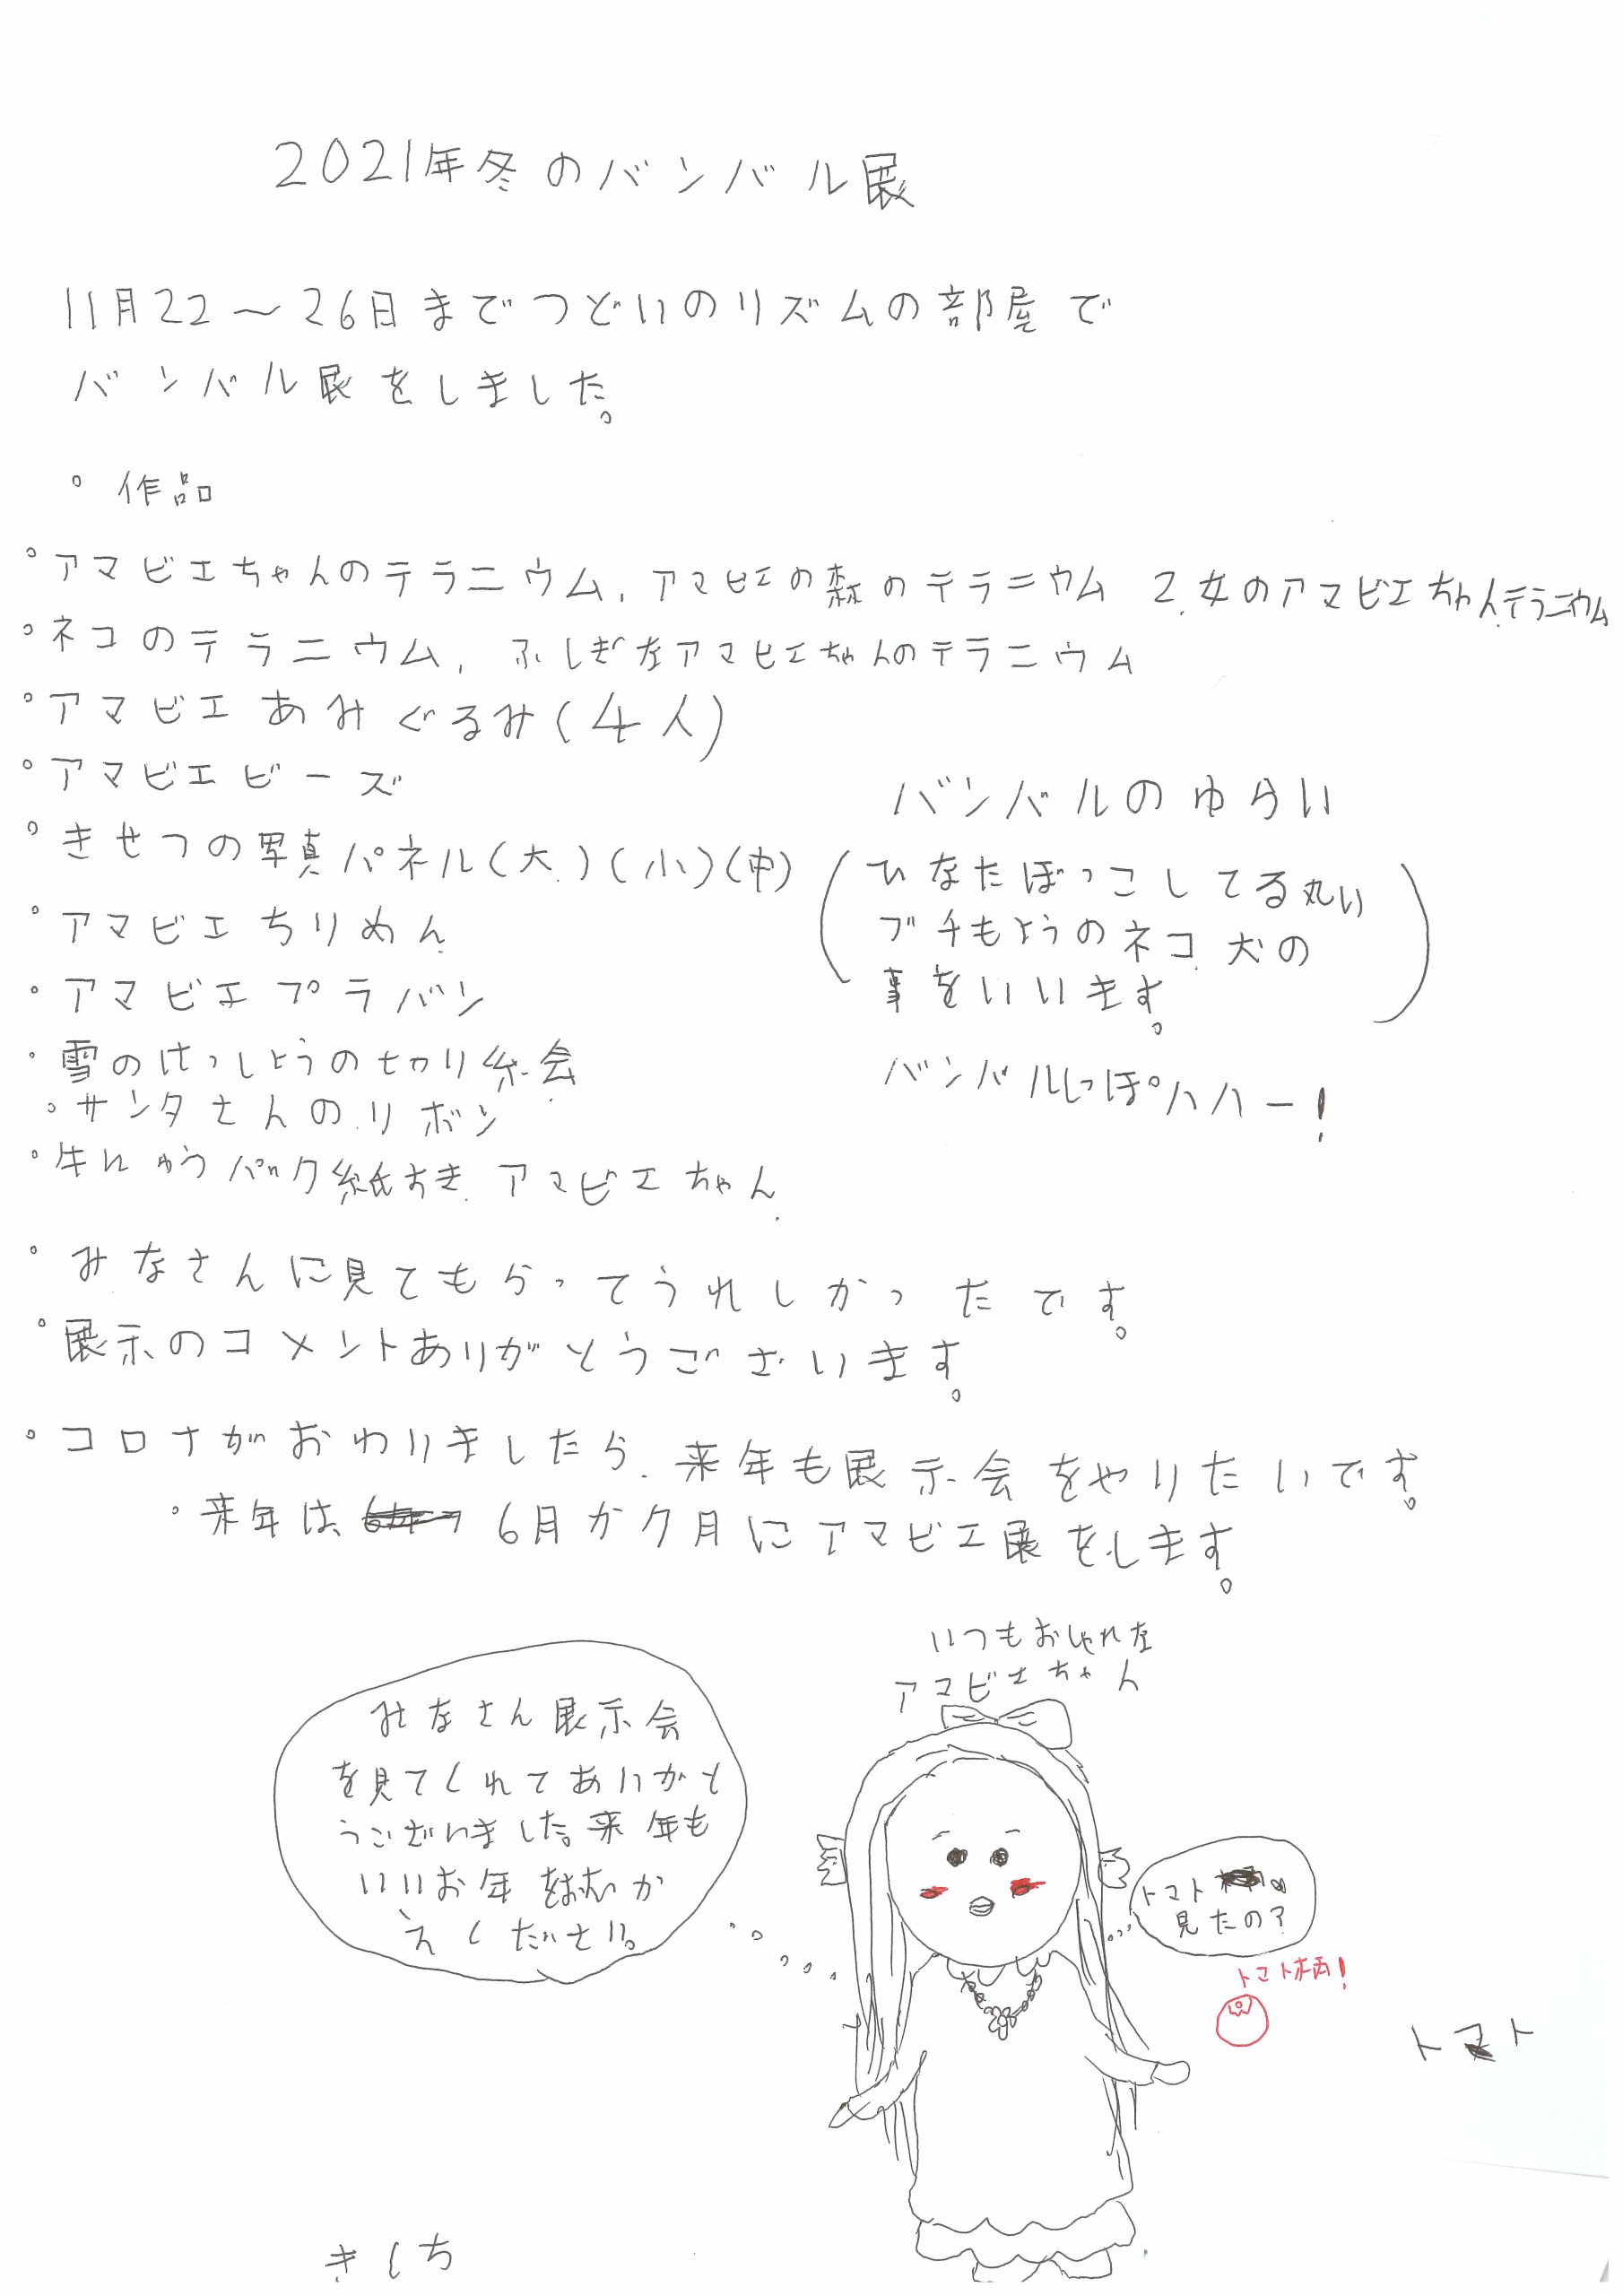 2021年冬のバンバル展
11月22～26日までつどいのリズムの部屋で
バンバル展をしました。
。作品
。アマビエちゃんのテラニウム、アマビエの森のテラニウム 2、女のアマビエちゃんテラニウム
。ネコのテラニウム、ふしぎなアマビエちゃんのテラニウム
。アマビエあみぐるみ(4人)
。アマビエビーズ
。きせつの写真パネル(大)(小)(中)
。アマビエちりめん
・アマビエプラバン
・雪のけっしょうの切り絵
。サンタさんのリボン
。牛にゅうパック紙すき アマビエちゃん
バンバルのゆらい
(ひなたぼっこしてる丸い
ブチもようのネコ、犬の
事をいいます。)
バンバルしっぽハハー!
。みなさんに見てもらってうれしかったです。
。展示のコメントありがとうございます。
。コロナがおわりましたら、来年も展示会をやりたいです。
。来年は、6月か7月にアマビエ展をします。
いつもおしゃれな
アマビエちゃん
みなさん展示会
を見てくれてありがと
うございました。来年も
いいお年をおむか
えください。
トマト
見たの?
トマト柄!
トマト
きしち